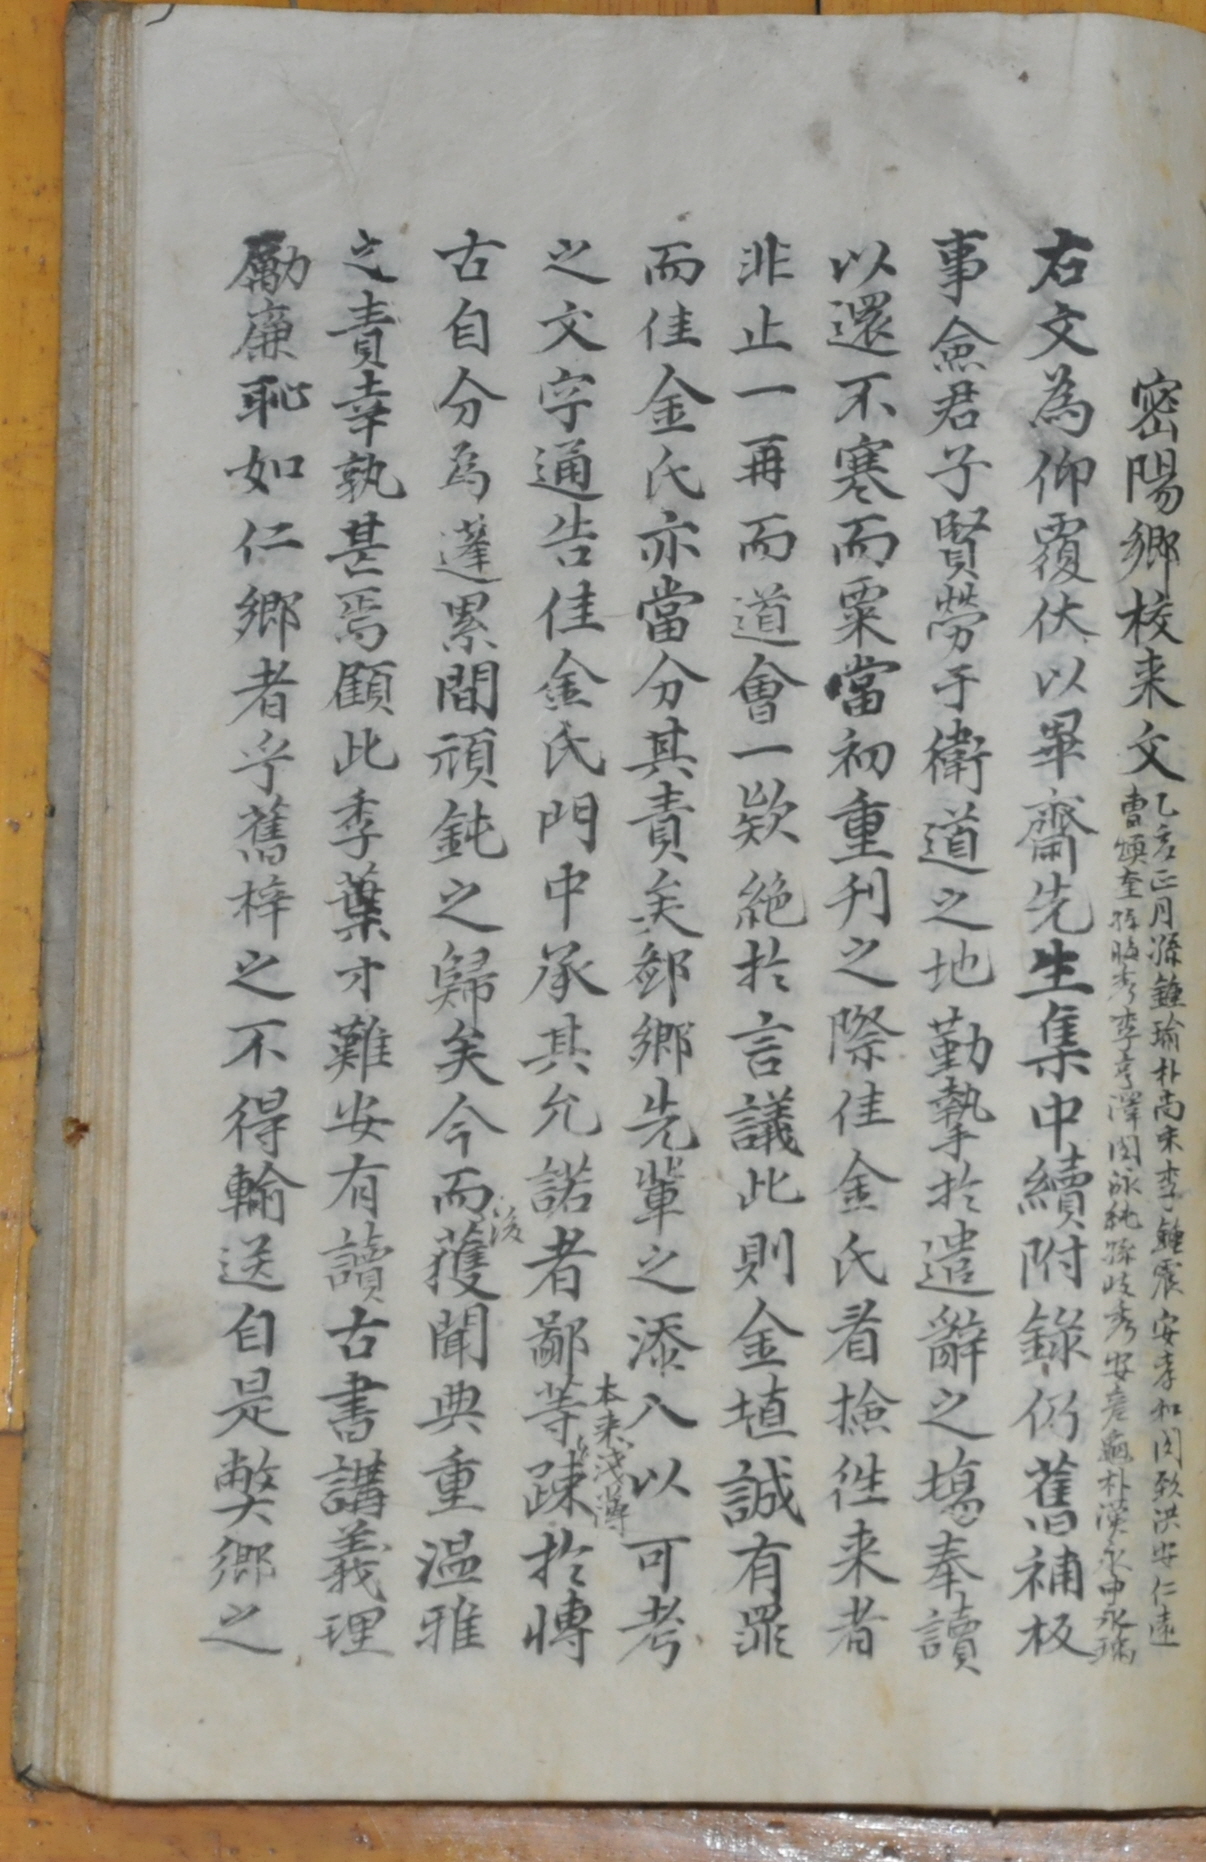 密陽鄉校来文
乙亥正月孫鍾瑜朴尚末李鍾震安孝和閔致洪安仁遠
曹煥奎孫昄秀李亨澤閔泳純孫岐秀安彦龜朴漢永申永瑞
右文為仰覆伏以畢齋先生集中續附錄仍舊補板
事僉君子賢勞于衛道之地勤摯於遣辭之塲奉讀
以還不寒而粟當初重刊之際佳金氏看撿徃来者
非止一再而道會一欵絶於言議此則金埴誠有罪
而佳金氏亦當分其責矣鄉先軰之添入以可考
之文字通告佳金氏門中承其允諾者鄙等疎於博
本来
浅薄
古自分為蓬累間頑鈍之歸矣今而獲聞典重温雅
後
之責幸孰甚焉顧此季葉才難安有讀古書講義理
勵廉恥如仁鄉者乎舊梓之不得輸送自是弊鄉之